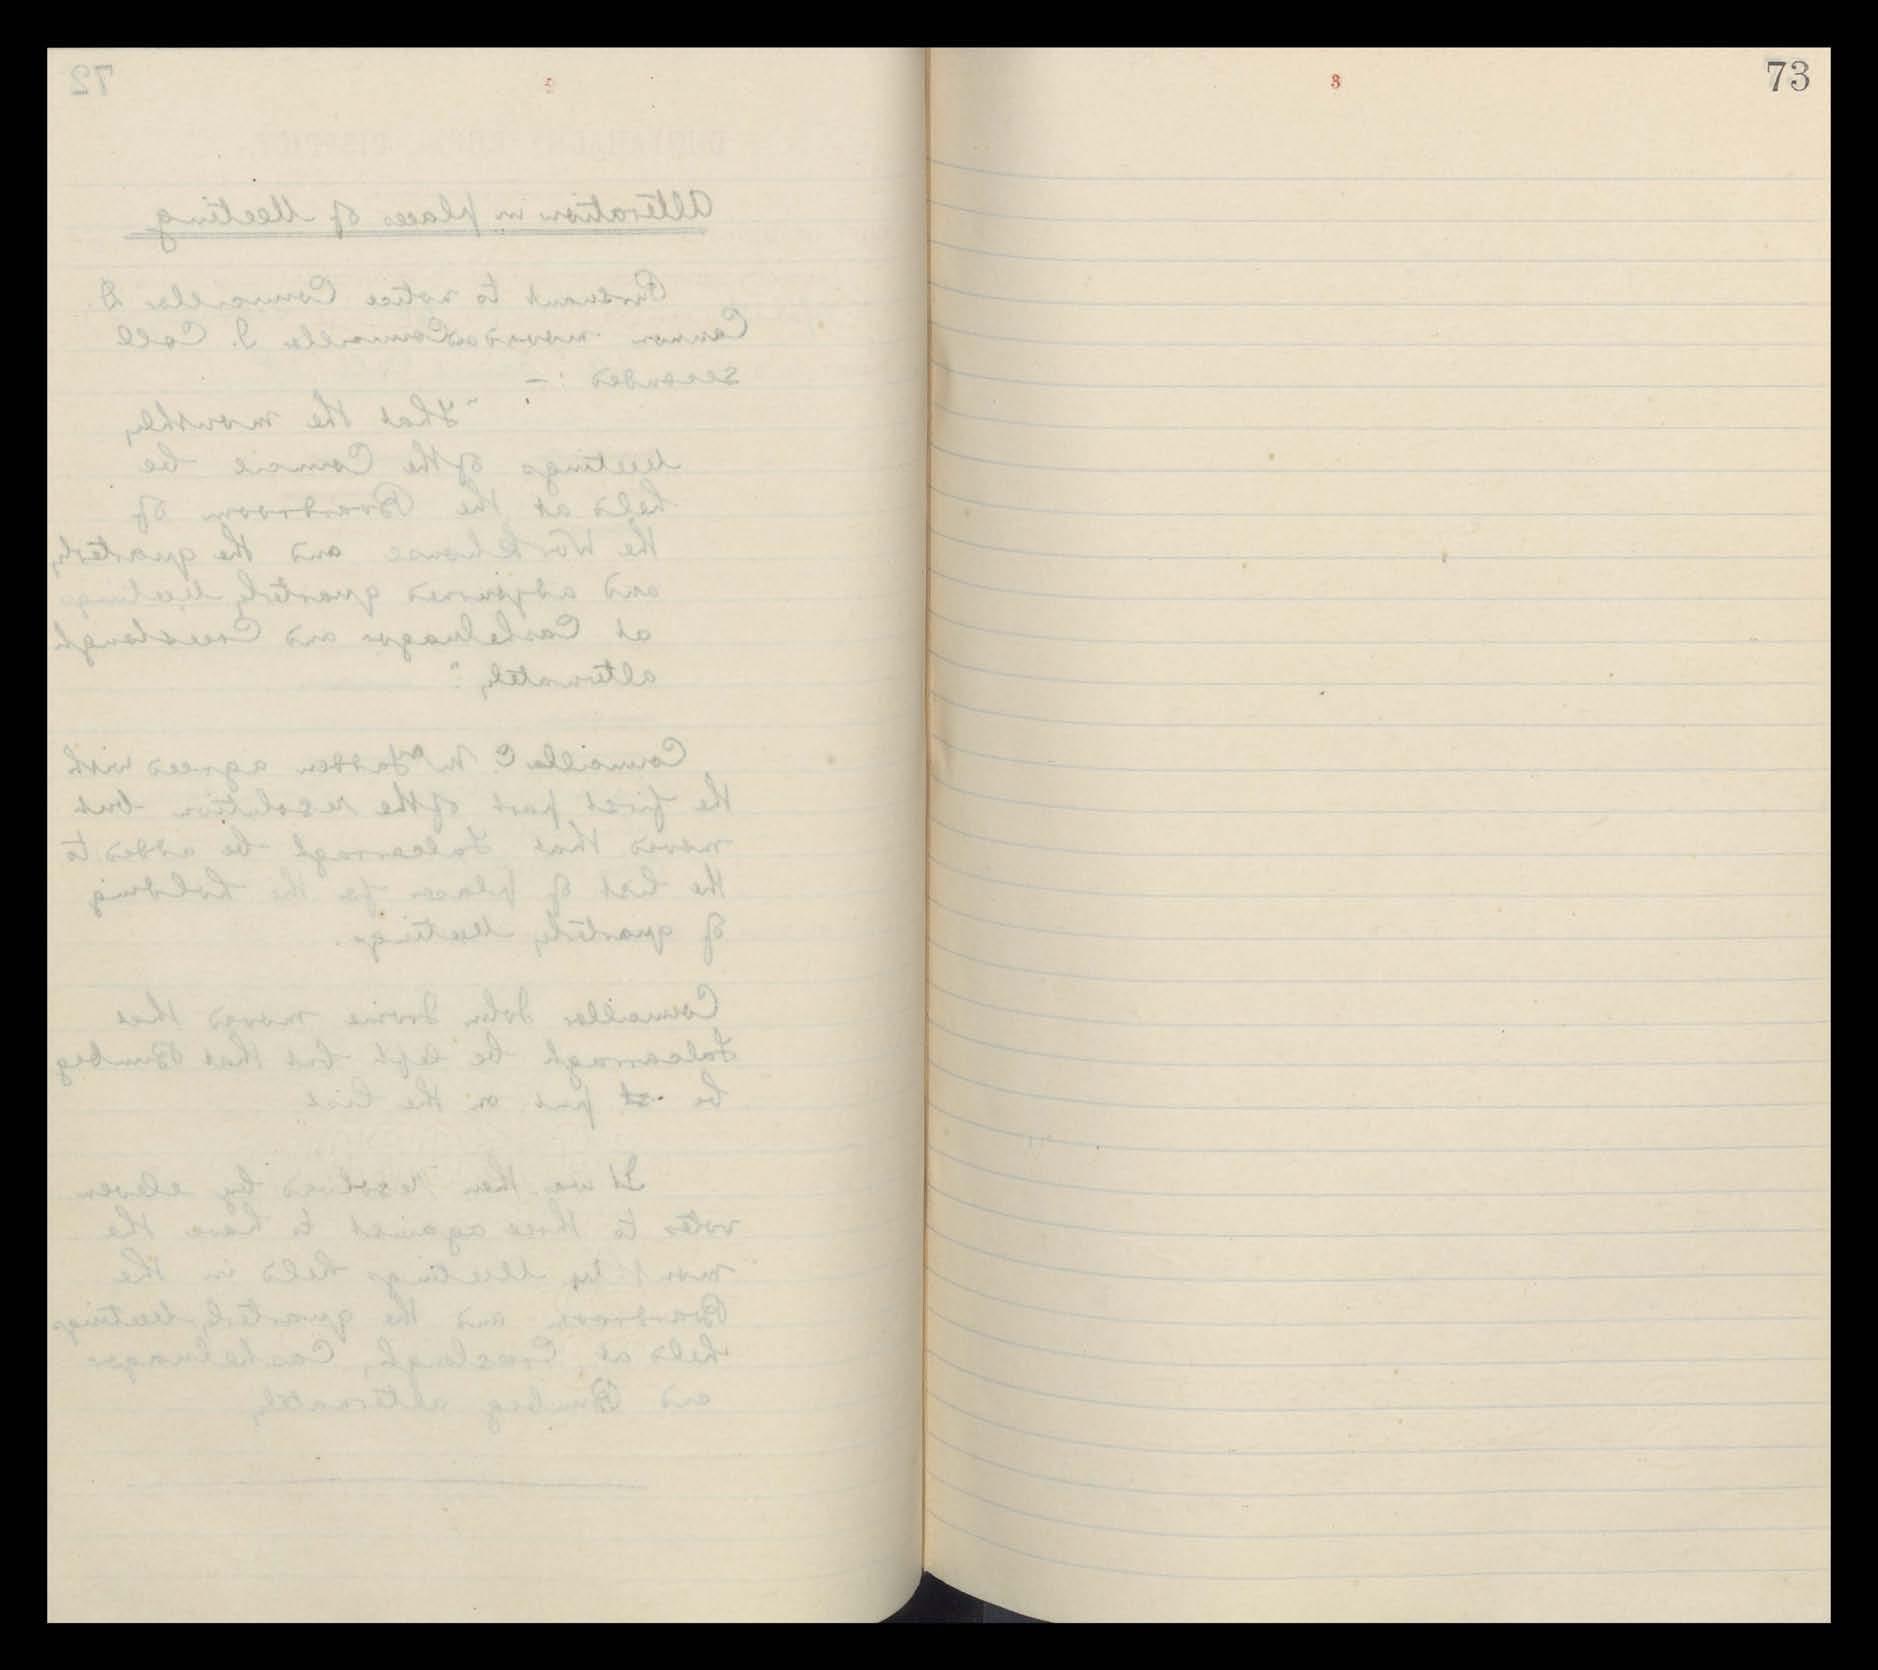 72
DUNFANAGHY RURAL DISTRICT.
Alteration in places of Meeting
Pursuant to notice Councillor D.
Cannon moved Councillor J. Coll
seconded :-
"That the monthly
Meetings of the Council be
held at the Boardroom of
the Workhouse and the quarterly
and adjourned quarterly Meetings
at Cashelnagor and Creeslough
alternately."
Councillor C. McFadden agrees with
the first part of the resolution but
moves that Falcarragh be added to
the list of places for the holding
of quarterly Meetings.
Councillor John Irvine moved that
Falcarragh be left but that Bunbeg
be put on the list
It was then resolved by eleven
votes to three against to have the
monthly Meetings held in the
Boardroom and the quarterly Meetings
held at Creeslough, Cashelnagor
and Bunbeg alternately
73
3